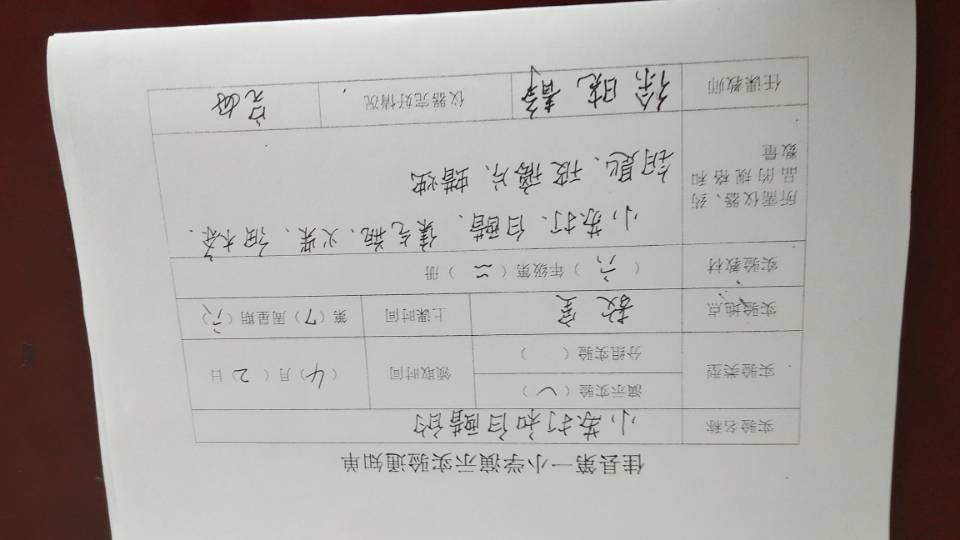 佳县第一小学演示实验通知单
实验名称 小苏打和白醋的
实验类型 演示实验（✓） 领取时间 （4）月（2）日
分组实验（ ）
实验地点 教室 上课时间 第（7）周星期（六）
实验教材 （六）年级第（二）册
所需仪器、药品的规格和数量 小苏打、白醋、集气瓶、火柴、细木条、
钥匙、玻璃片、蜡烛
任课教师 徐晓静 仪器完好情况 完好